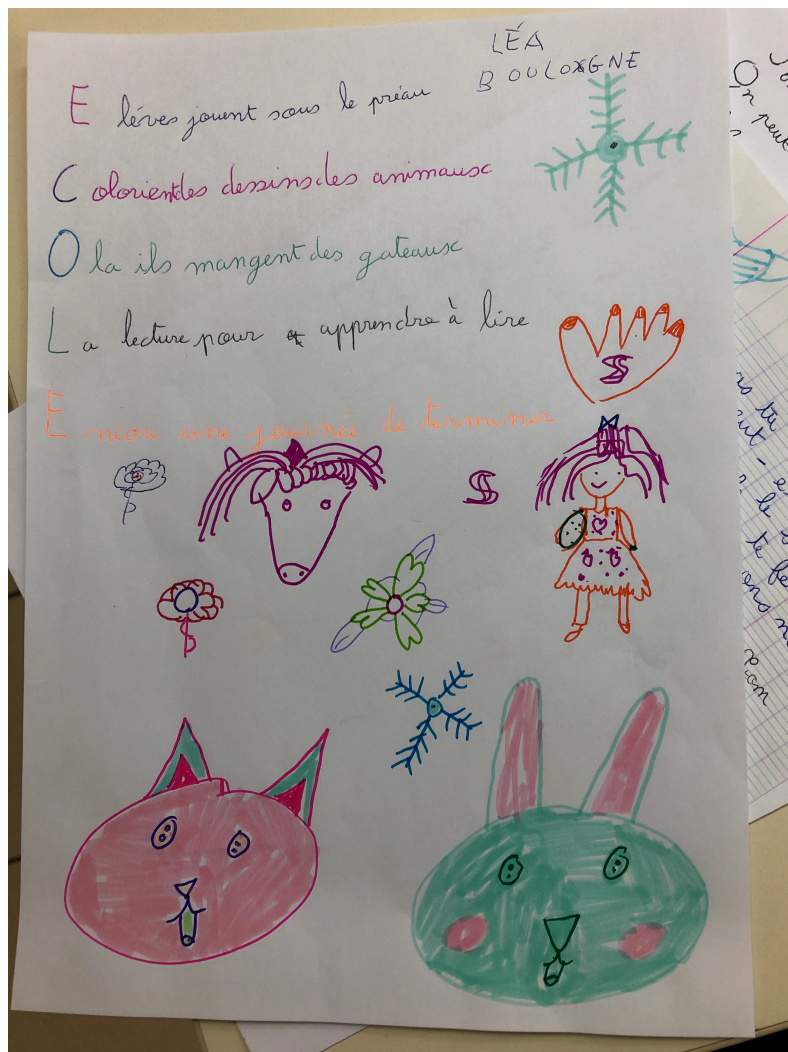 LÉA
BOULOGNE
Eléves jouent sous le préau
Colorientdes dessinsdes animaux
Ola ils mangent des gateaux
La lecture pour apprendre à lire
Encor une journée de terminer
S
S
On
peut